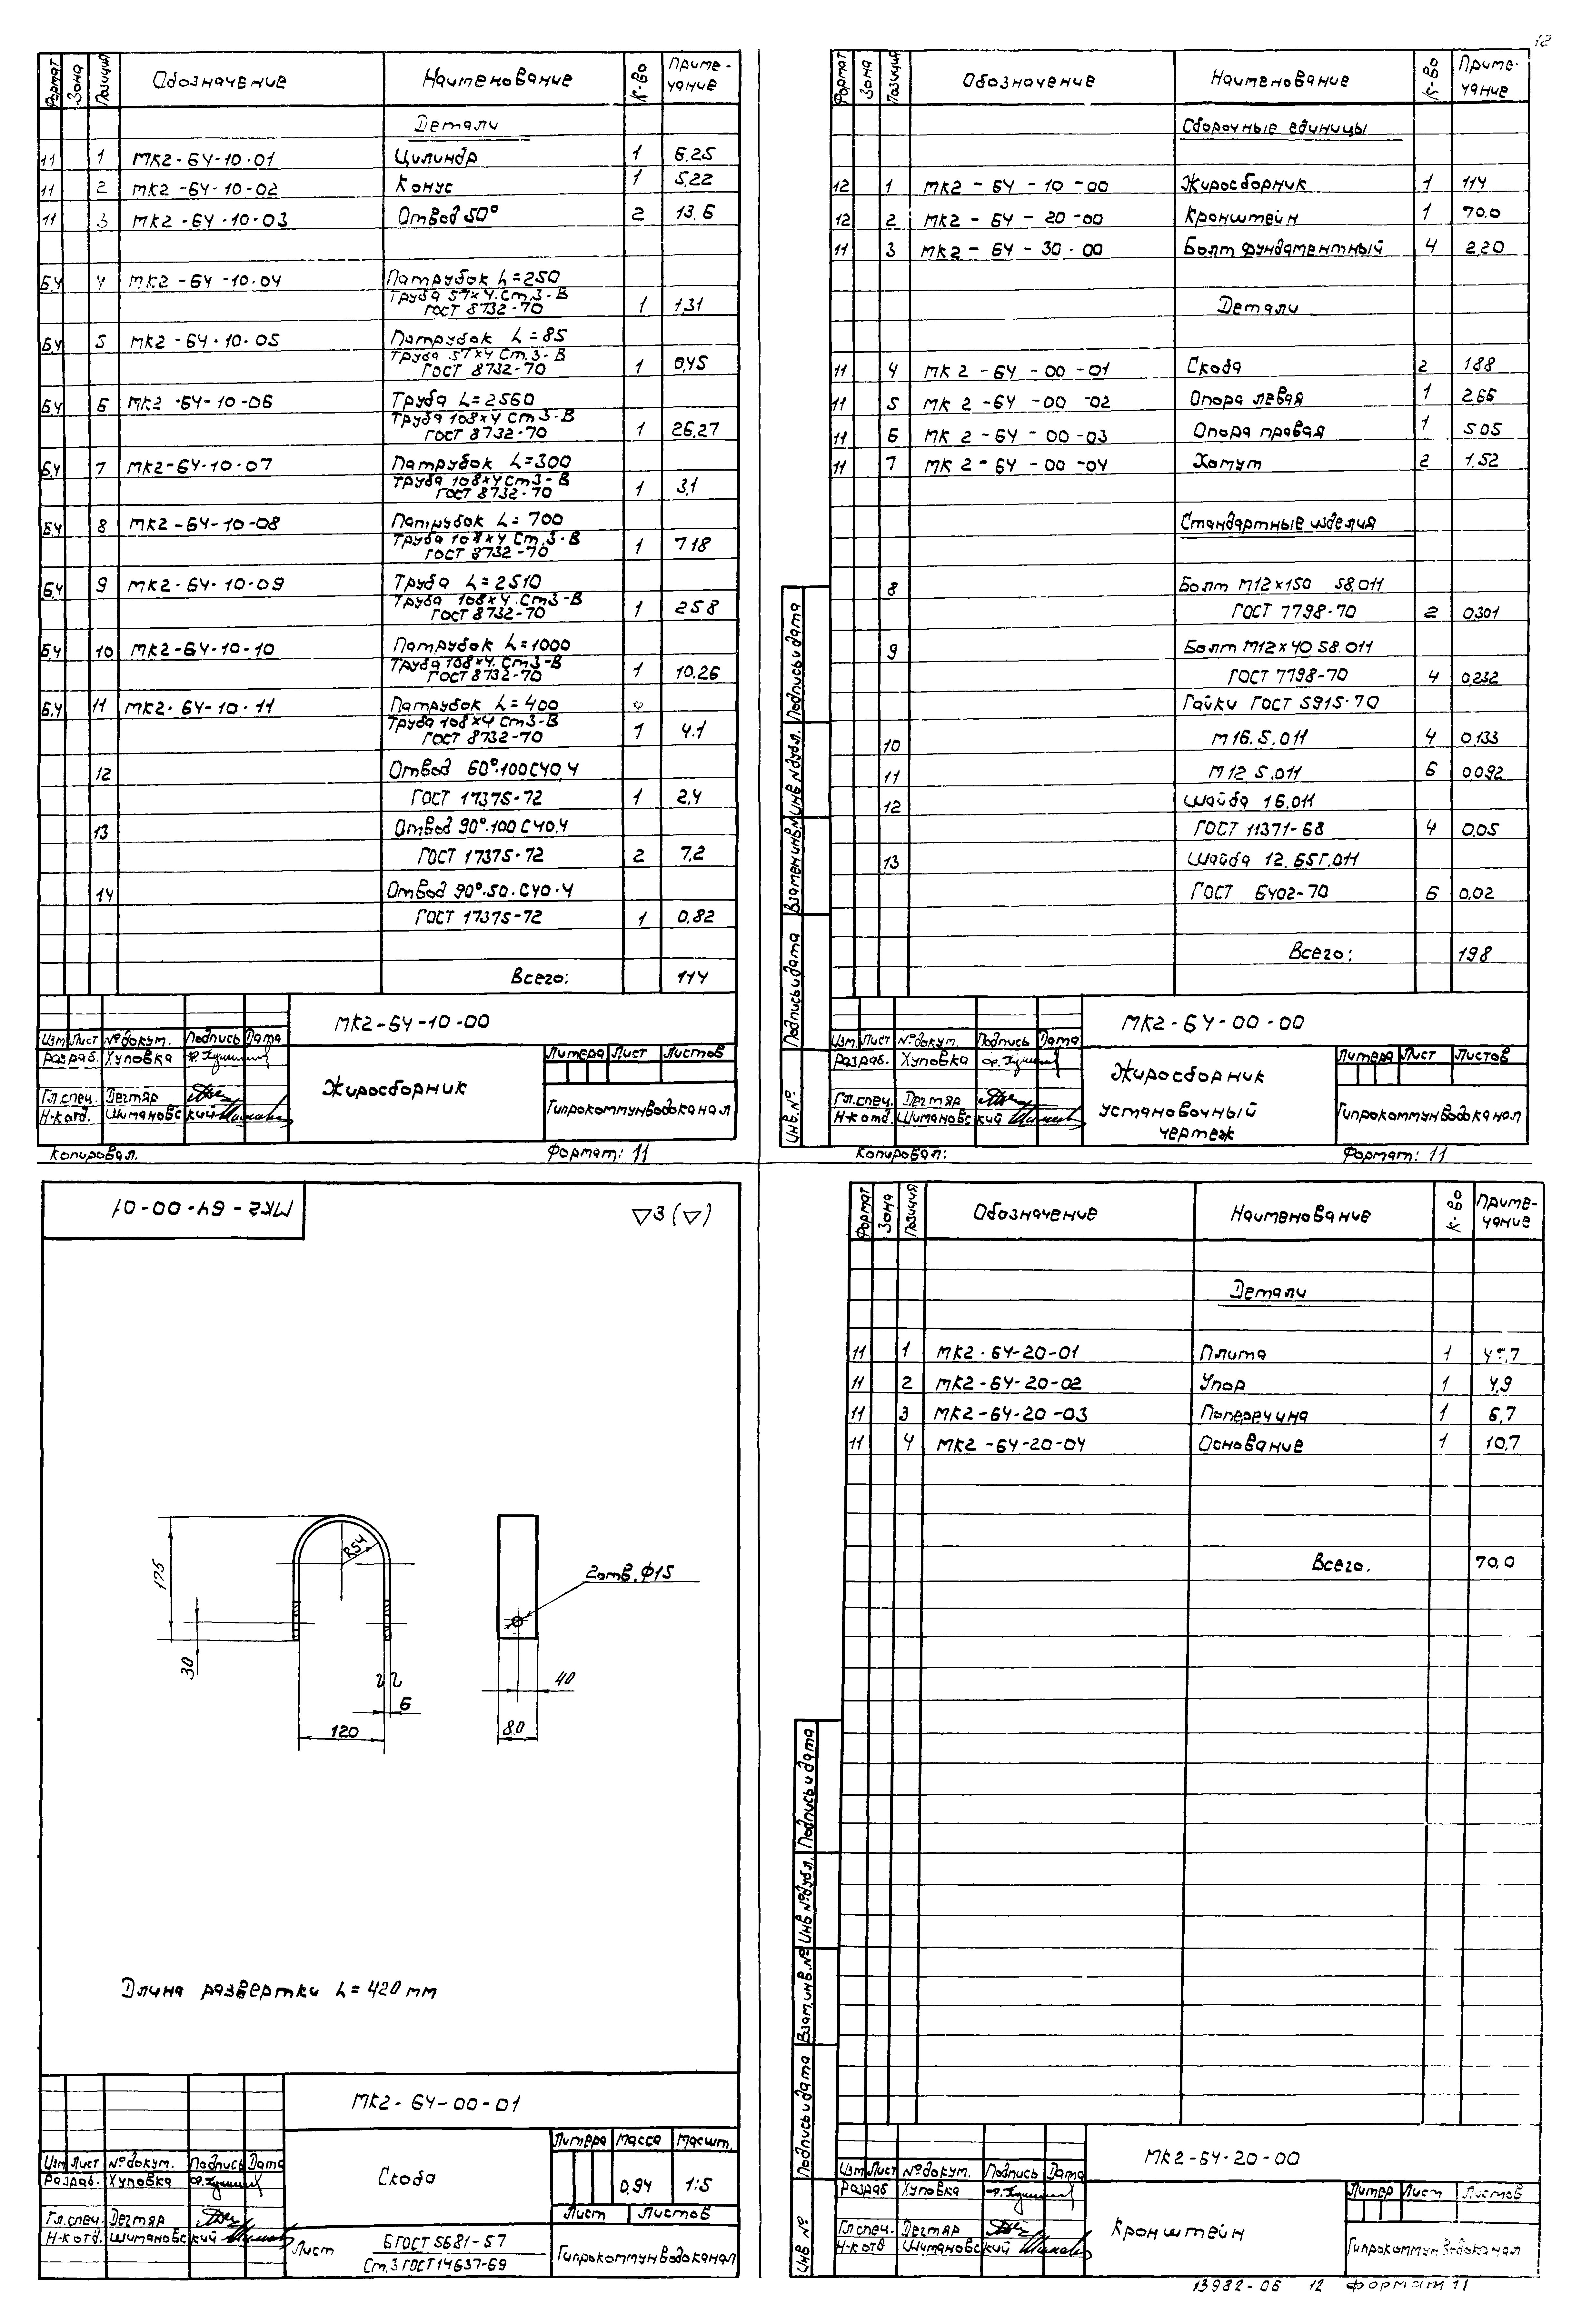 12
Формат Зона Позиция Обозначение Наименование К-во Приме-чание
Детали
11 1 МК2-64-10-01 Цилиндр 1 6.25
11 2 МК2-64-10-02 Конус 1 5,22
11 3 МК2-64-10-03 Отвод 50° 2 13.6
Б.Ч 4 МК2-64-10-04 Патрубок L=250
Труба 57×4.Ст.3-В
ГОСТ 8732-70 1 1.31
Б.Ч 5 МК2-64-10-05 Патрубок L=85
Труба 57×4 Ст.3-В
ГОСТ 8732-70 1 0,45
Б.Ч 6 МК2-64-10-06 Труба L=2560
Труба 108×4 Ст.3-В
ГОСТ 8732-70 1 26,27
Б.Ч 7 МК2-64-10-07 Патрубок L=300
Труба 108×4 Ст3-В
ГОСТ 8732-70 1 3,1
Б.Ч 8 МК2-64-10-08 Патрубок L=700
Труба 108×4 Ст.3-В
ГОСТ 8732-70 1 7.18
Б.Ч 9 МК2-64-10-09 Труба L=2510
Труба 108×4.Ст3-В
ГОСТ 8732-70 1 25.8
Б.Ч 10 МК2-64-10-10 Патрубок L=1000
Труба 108×4.Ст3-В
ГОСТ 8732-70 1 10.26
Б.Ч 11 МК2-64-10-11 Патрубок L=400
Труба 108×4 Ст3-В
ГОСТ 8732-70 1 4.1
12 Отвод 60°.100С40.4
ГОСТ 17375-72 1 2,4
13 Отвод 90°.100С40.4
ГОСТ 17375-72 2 7.2
14 Отвод 90°.50.С40.4
ГОСТ 17375-72 1 0.82
Всего: 114
МК2-64-10-00
Изм Лист №докум. Подпись Дата
Разраб. Хуповка
Гл.спец. Дегтяр
Н-котд. Шимановский
Жиросборник
Литера Лист Листов
Гипрокоммунводоканал
Копировал. Формат: 11
Формат Зона Позиция Обозначение Наименование К-во Приме-чание
Сборочные единицы
12 1 МК2-64-10-00 Жиросборник 1 114
12 2 МК2-64-20-00 Кронштейн 1 70.0
11 3 МК2-64-30-00 Болт фундаментный 4 2.20
Детали
11 4 МК2-64-00-01 Скоба 2 1.88
11 5 МК2-64-00-02 Опора левая 1 2.66
11 6 МК2-64-00-03 Опора правая 1 5.05
11 7 МК2-64-00-04 Хомут 2 1.52
Стандартные изделия
8 Болт М12×150 58.011
ГОСТ 7798-70 2 0.301
9 Болт М12×40.58.011
ГОСТ 7798-70 4 0.232
Гайки ГОСТ 5915-70
10 М16.5.011 4 0.133
11 М12.5.011 6 0,092
12 Шайба 16.011
ГОСТ 11371-68 4 0.05
13 Шайба 12.65Г.011
ГОСТ 6402-70 6 0.02
Всего: 198
Подпись и дата
Инв №дубл.
Взамен инв.№
Подпись и дата
Инв.№
МК2-64-00-00
Изм. Лист №докум. Подпись Дата
Разраб. Хуповка
Гл.спец. Дегтяр
Н-котд. Шимановский
Жиросборник
установочный
чертеж
Литера Лист Листов
Гипрокоммунводоканал
Копировал: Формат: 11
МК2-64-00-01
▽3(▽)
R54
175
30
120
6
2отв.Φ15
40
80
Длина развертки L=420 мм
МК2-64-00-01
Изм Лист №докум. Подпись Дата
Разраб. Хуповка
Гл.спец. Дегтяр
Н-котд. Шимановский
Скоба
Литера Масса Масшт.
0,94 1:5
Лист Листов
Лист 6 ГОСТ 5681-57
Ст.3 ГОСТ 14637-69
Гипрокоммунводоканал
Формат Зона Позиция Обозначение Наименование К-во Приме-чание
Детали
11 1 МК2-64-20-01 Плита 1
11 2 МК2-64-20-02 Упор 1 4,9
11 3 МК2-64-20-03 Поперечина 1 6,7
11 4 МК2-64-20-04 Основание 1 10,7
Всего. 70.0
Подпись и дата
Инв №дубл.
Взам.инв.№
Подпись и дата
Инв №
МК2-64-20-00
Изм Лист №докум. Подпись Дата
Разраб Хуповка
Гл.спец. Дегтяр
Н-котд Шимановский
Кронштейн
Литер Лист Листов
Гипрокоммунводоканал
13982-06 12 формат 11